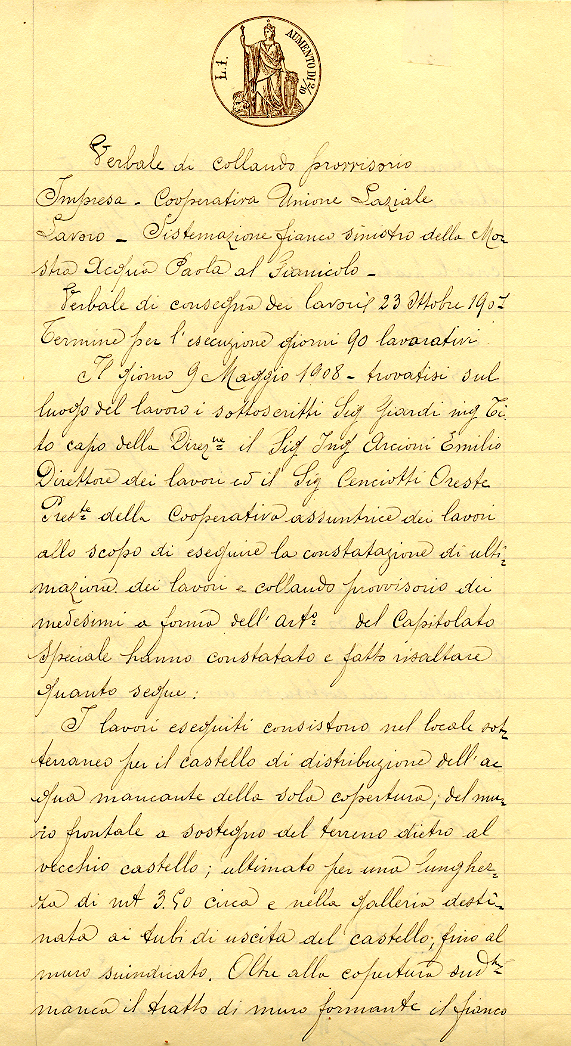 L. 1.
AUMENTO DI 2/10
Verbale di collaudo provvisorio
Impresa - Cooperativa Unione Laziale
Lavoro - Sistemazione fianco sinistro della Mo=
stra Acqua Paola al Gianicolo -
Verbale di consegna dei lavori 23 Ottobre 1907
Termine per l'esecuzione giorni 90 lavarativi.
Il giorno 9 Maggio 1908 - trovatisi sul
luogo del lavoro i sottoscritti Sig Giardi ing Ti=
to capo della Direz.ne il Sig Ing Arcioni Emilio
Direttore dei lavori ed il Sig Cenciotti Oreste
Pres.te della Cooperativa assuntrice dei lavori
allo scopo di eseguire la constatazione di ulti=
mazione dei lavori e collaudo provvisorio dei
medesimi a forma dell'art.o del Capitolato
Speciale hanno constatato e fatto risaltare
quanto segue:
I lavori eseguiti consistono nel locale sot=
terraneo per il castello di distribuzione dell'ac=
qua mancante della sola copertura; del mu=
ro frontale a sostegno del terreno dietro al
vecchio castello; ultimato per una lunghez=
za di mt 3.50 circa e nella galleria desti=
nata ai tubi di uscita del castello; fino al
muro suindicato. Oltre alla copertura sud.ta
manca il tratto di muro formante il fianco